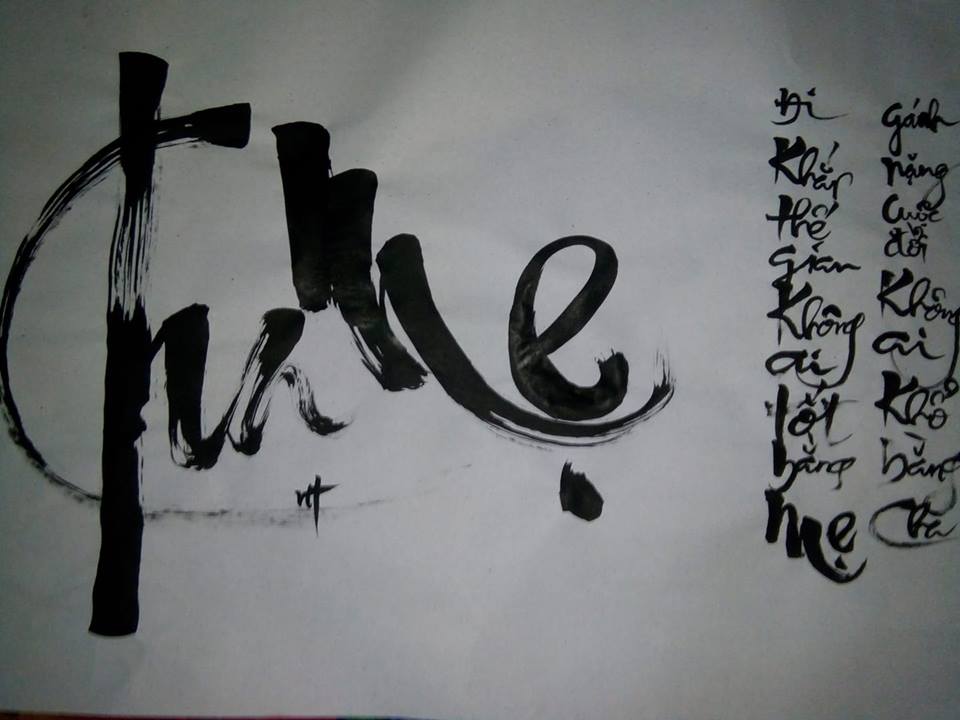 Cha Mẹ
Đi
Khắp
thế
gian
Không
ai
tốt
bằng
Mẹ
Gánh
nặng
Cuộc
đời
Không
ai
Khổ
bằng
Cha